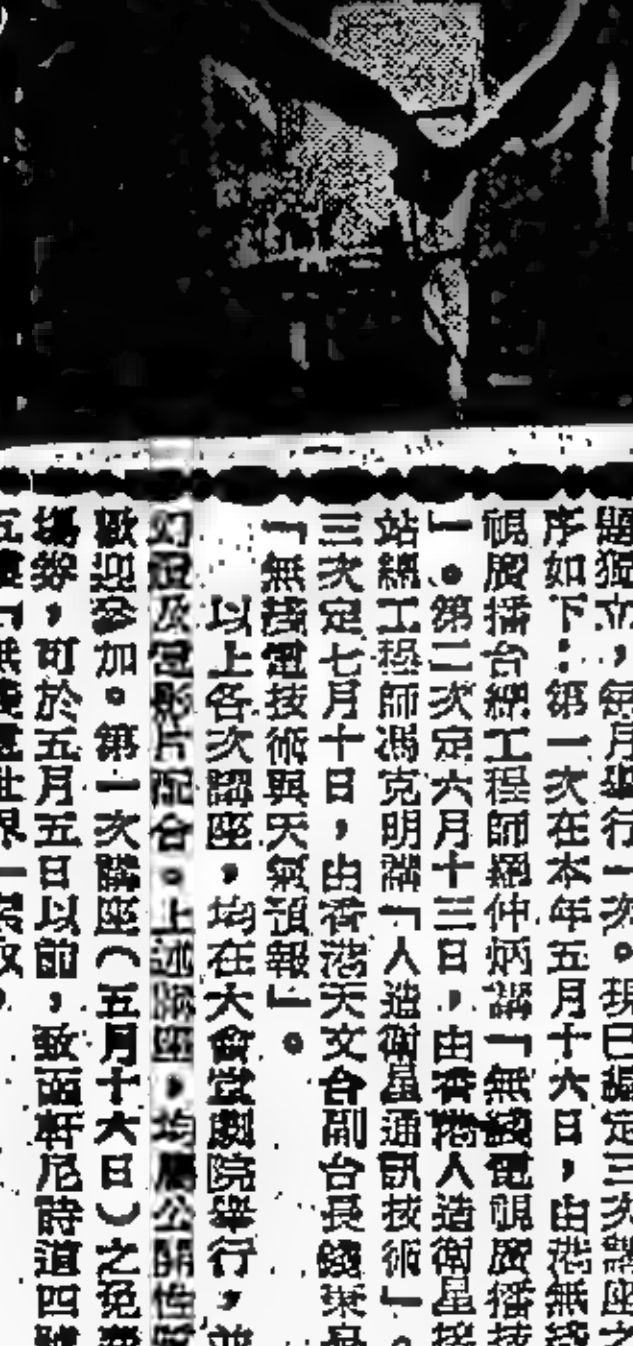 題獨立，每月舉行一次。現已編定三次講座之
序如下：第一次在本年五月十六日，由港無綫
視廣播台總工程師 仲炳講「無綫電視廣播技
」。第二次定六月十三日，由香港人造衛星接
站總工程師馮克明講「人造衛星通訊技術」。
三次定七月十日，由香港天文台副台長錢
「無綫電技術與天氣預報」。
以上各次講座，均在大會堂劇院舉行，並
幻燈及電影片配合。上述講座，均屬公開性
歡迎參加。第一次講座（五月十六日）之免費
場券，可於五月五日以前，致函軒尼詩道四號
「無綫電世界」